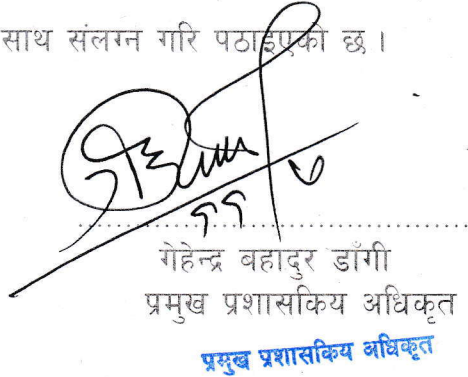 साथ संलग्न गरि पठाइएको छ ।
गेहेन्द्र बहादुर डाँगी
प्रमुख प्रशासकिय अधिकृत
प्रमुख प्रशासकिय अधिकृत